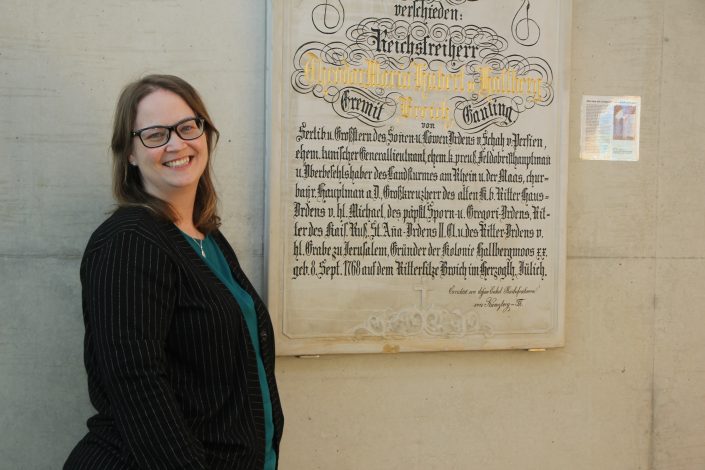 verschieden:
Reichsfreiherr
Theodor Maria Hubert v. Hallberg
Eremit Broich Gauling
von
Serlib u. Großstern des Soñen- u. Löwen Ordens v. Schah v. Persien,
ehem. tunischer Generallieutnant, ehem. k. preuß. Feldobristhauptman
u. Oberbefehlshaber des Landsturmes am Rhein u. der Maas, chur-
bayr. Hauptman a. D. Großkreuzherr des alten K. b. Ritter Haus-
Ordens v. hl. Michael, des päpstl. Sporn- u. Gregori-Ordens, Rit-
ter des Kais. Ruß. St. Aña-Ordens II. Cl. u. des Ritter-Ordens v.
hl. Grabe zu Jerusalem, Gründer der Kolonie Hallbergmoos xx.
geb. 8. Sept. 1768 auf dem Rittersitze Broich im Herzogth. Jülich.